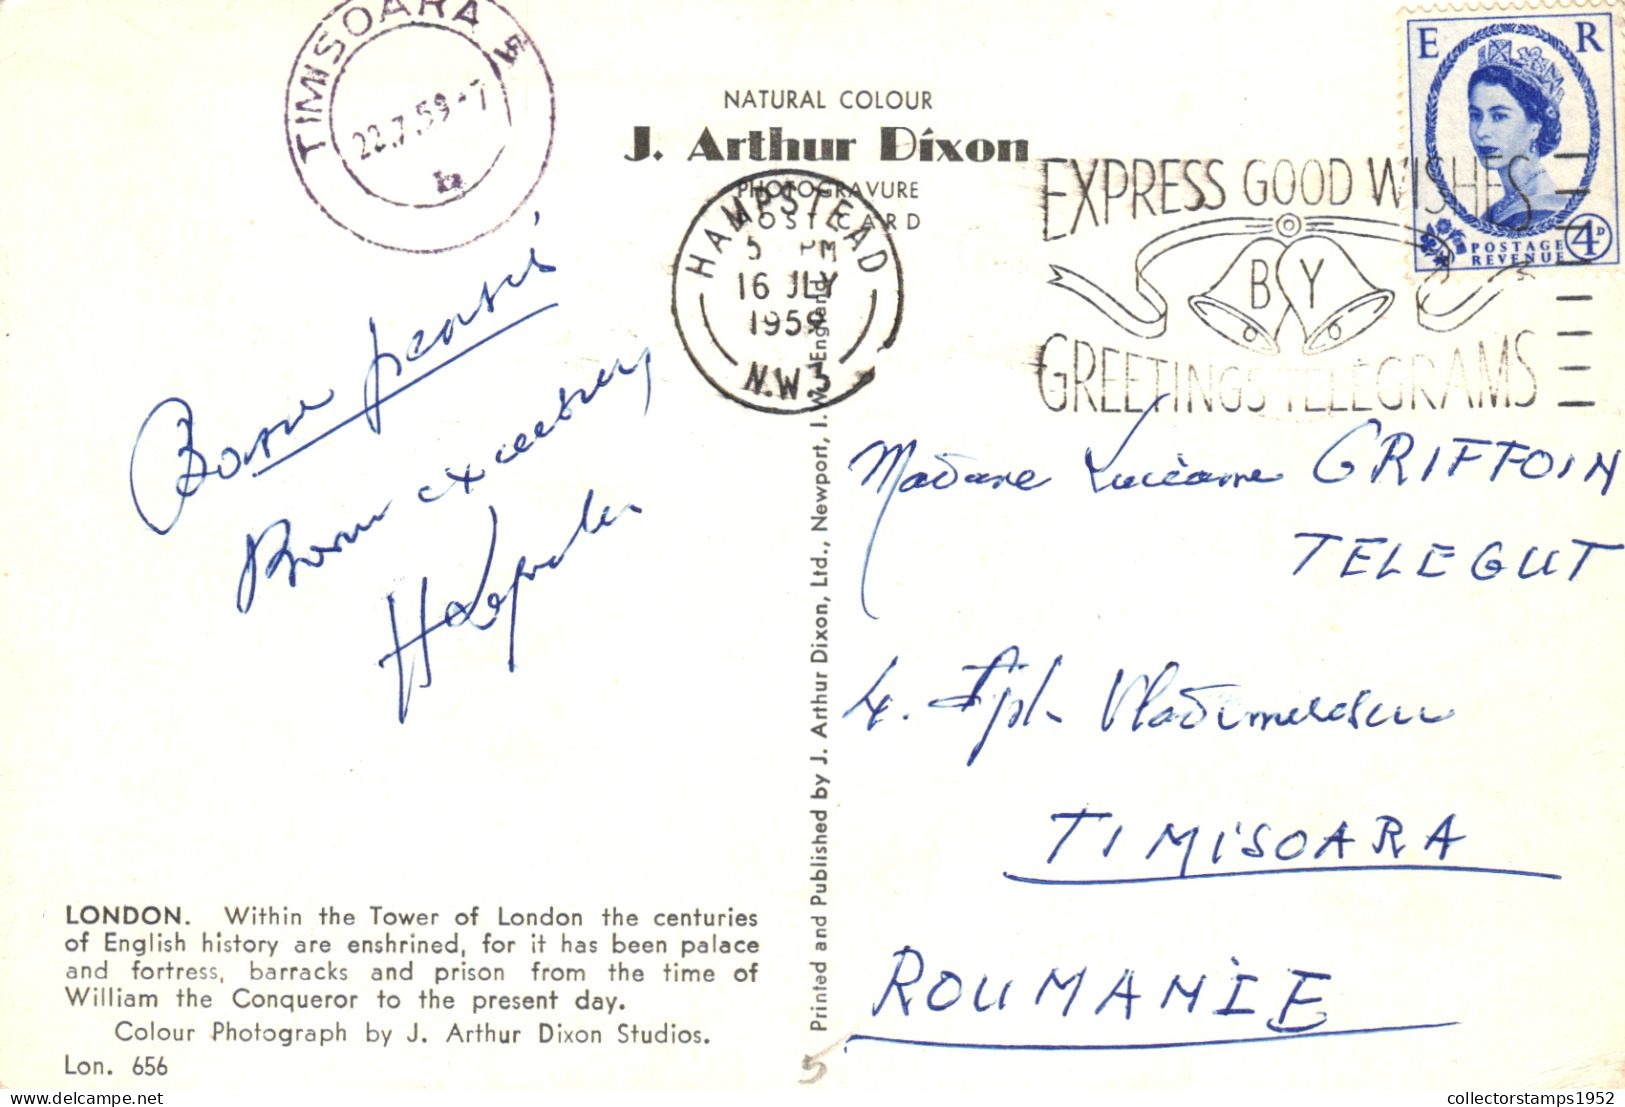 TIMISOARA 5
22.7.59-7
NATURAL COLOUR
J. Arthur Dixon
PHOTOGRAVURE
POST CARD
HAMPSTEAD
5 PM
16 JLY
1959
N.W.3
EXPRESS GOOD WISHES
BY
GREETINGS TELEGRAMS
E R
POSTAGE
REVENUE
4D
Madame Lucienne GRIFFOIN
TELEGUT
4. Spl. Vladimirescu
TIMISOARA
ROUMANIE
Printed and Published by J. Arthur Dixon, Ltd., Newport, I. W., England
LONDON. Within the Tower of London the centuries
of English history are enshrined, for it has been palace
and fortress, barracks and prison from the time of
William the Conqueror to the present day.
Colour Photograph by J. Arthur Dixon Studios.
Lon. 656
5
https://www.delcampe.net
collectorstamps1952